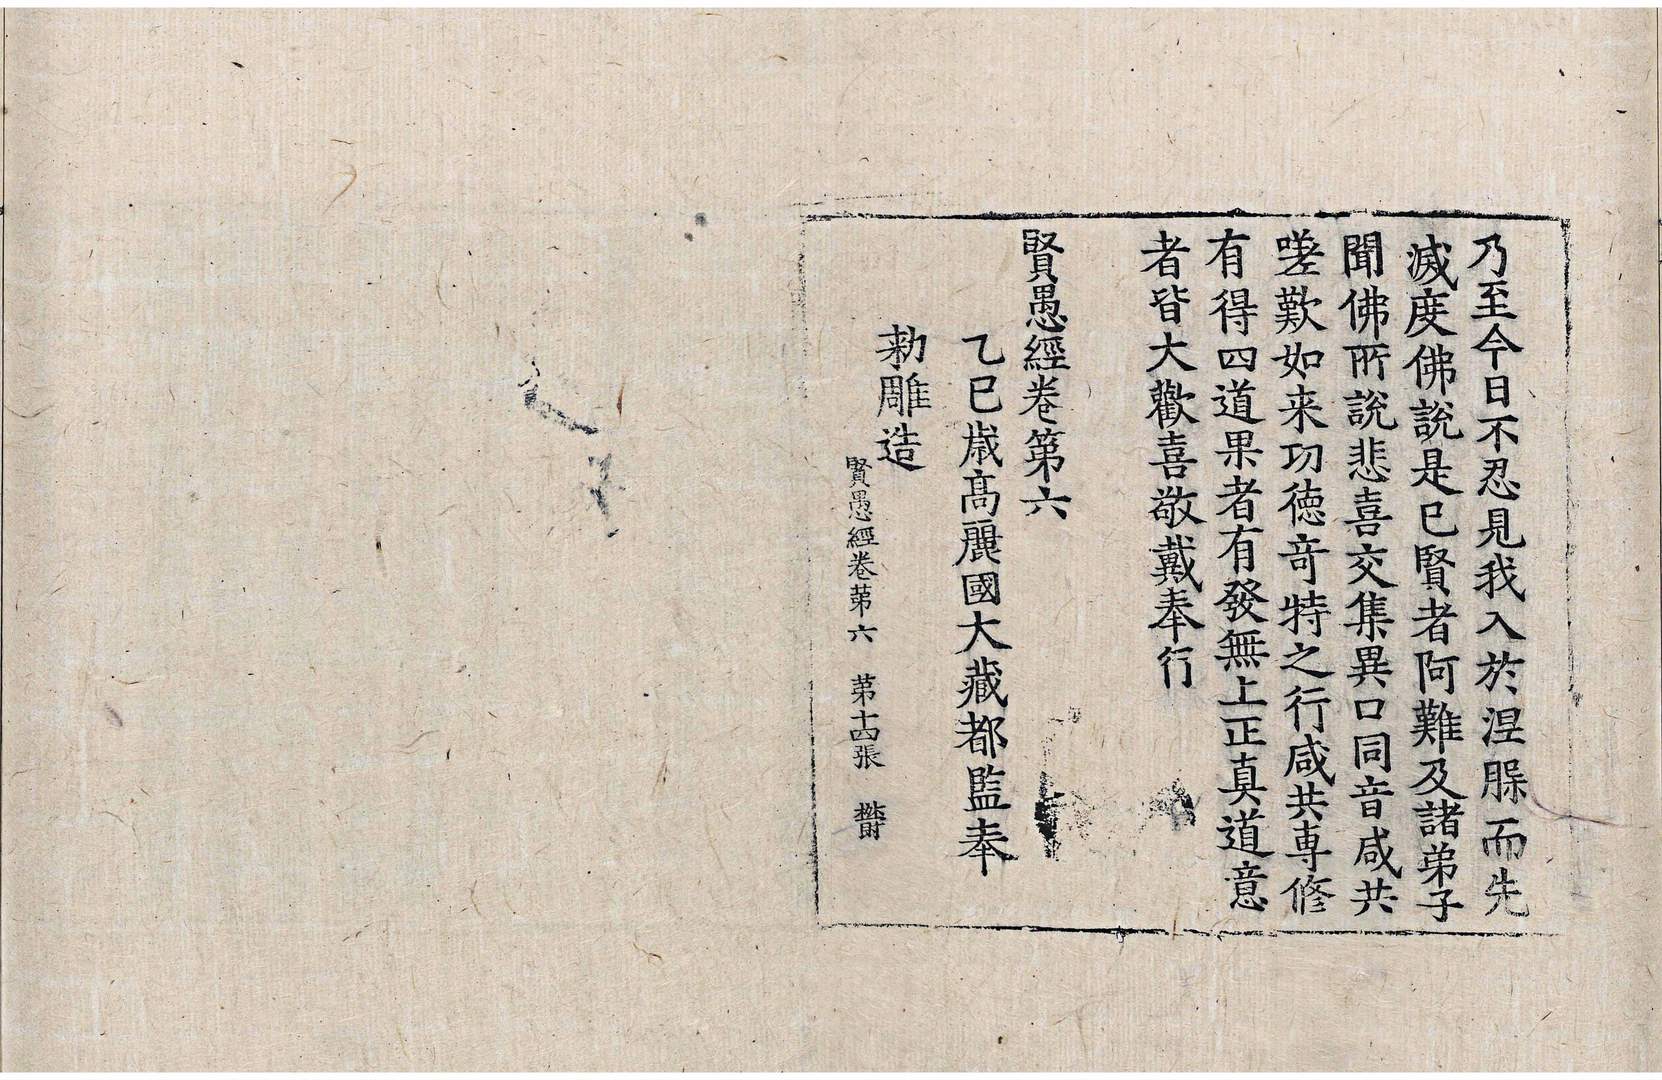 乃至今日不忍見我入於涅脲而先
滅度佛說是已賢者阿難及諸弟子
聞佛所說悲喜交集異口同音咸共
嗟歎如来功德竒特之行咸共専修
有得四道果者有發無上正真道意
者皆大歡喜敬戴奉行
賢愚經卷第六
乙巳歳髙麗國大藏都監奉
勑雕造
賢愚經卷苐六 苐十四張